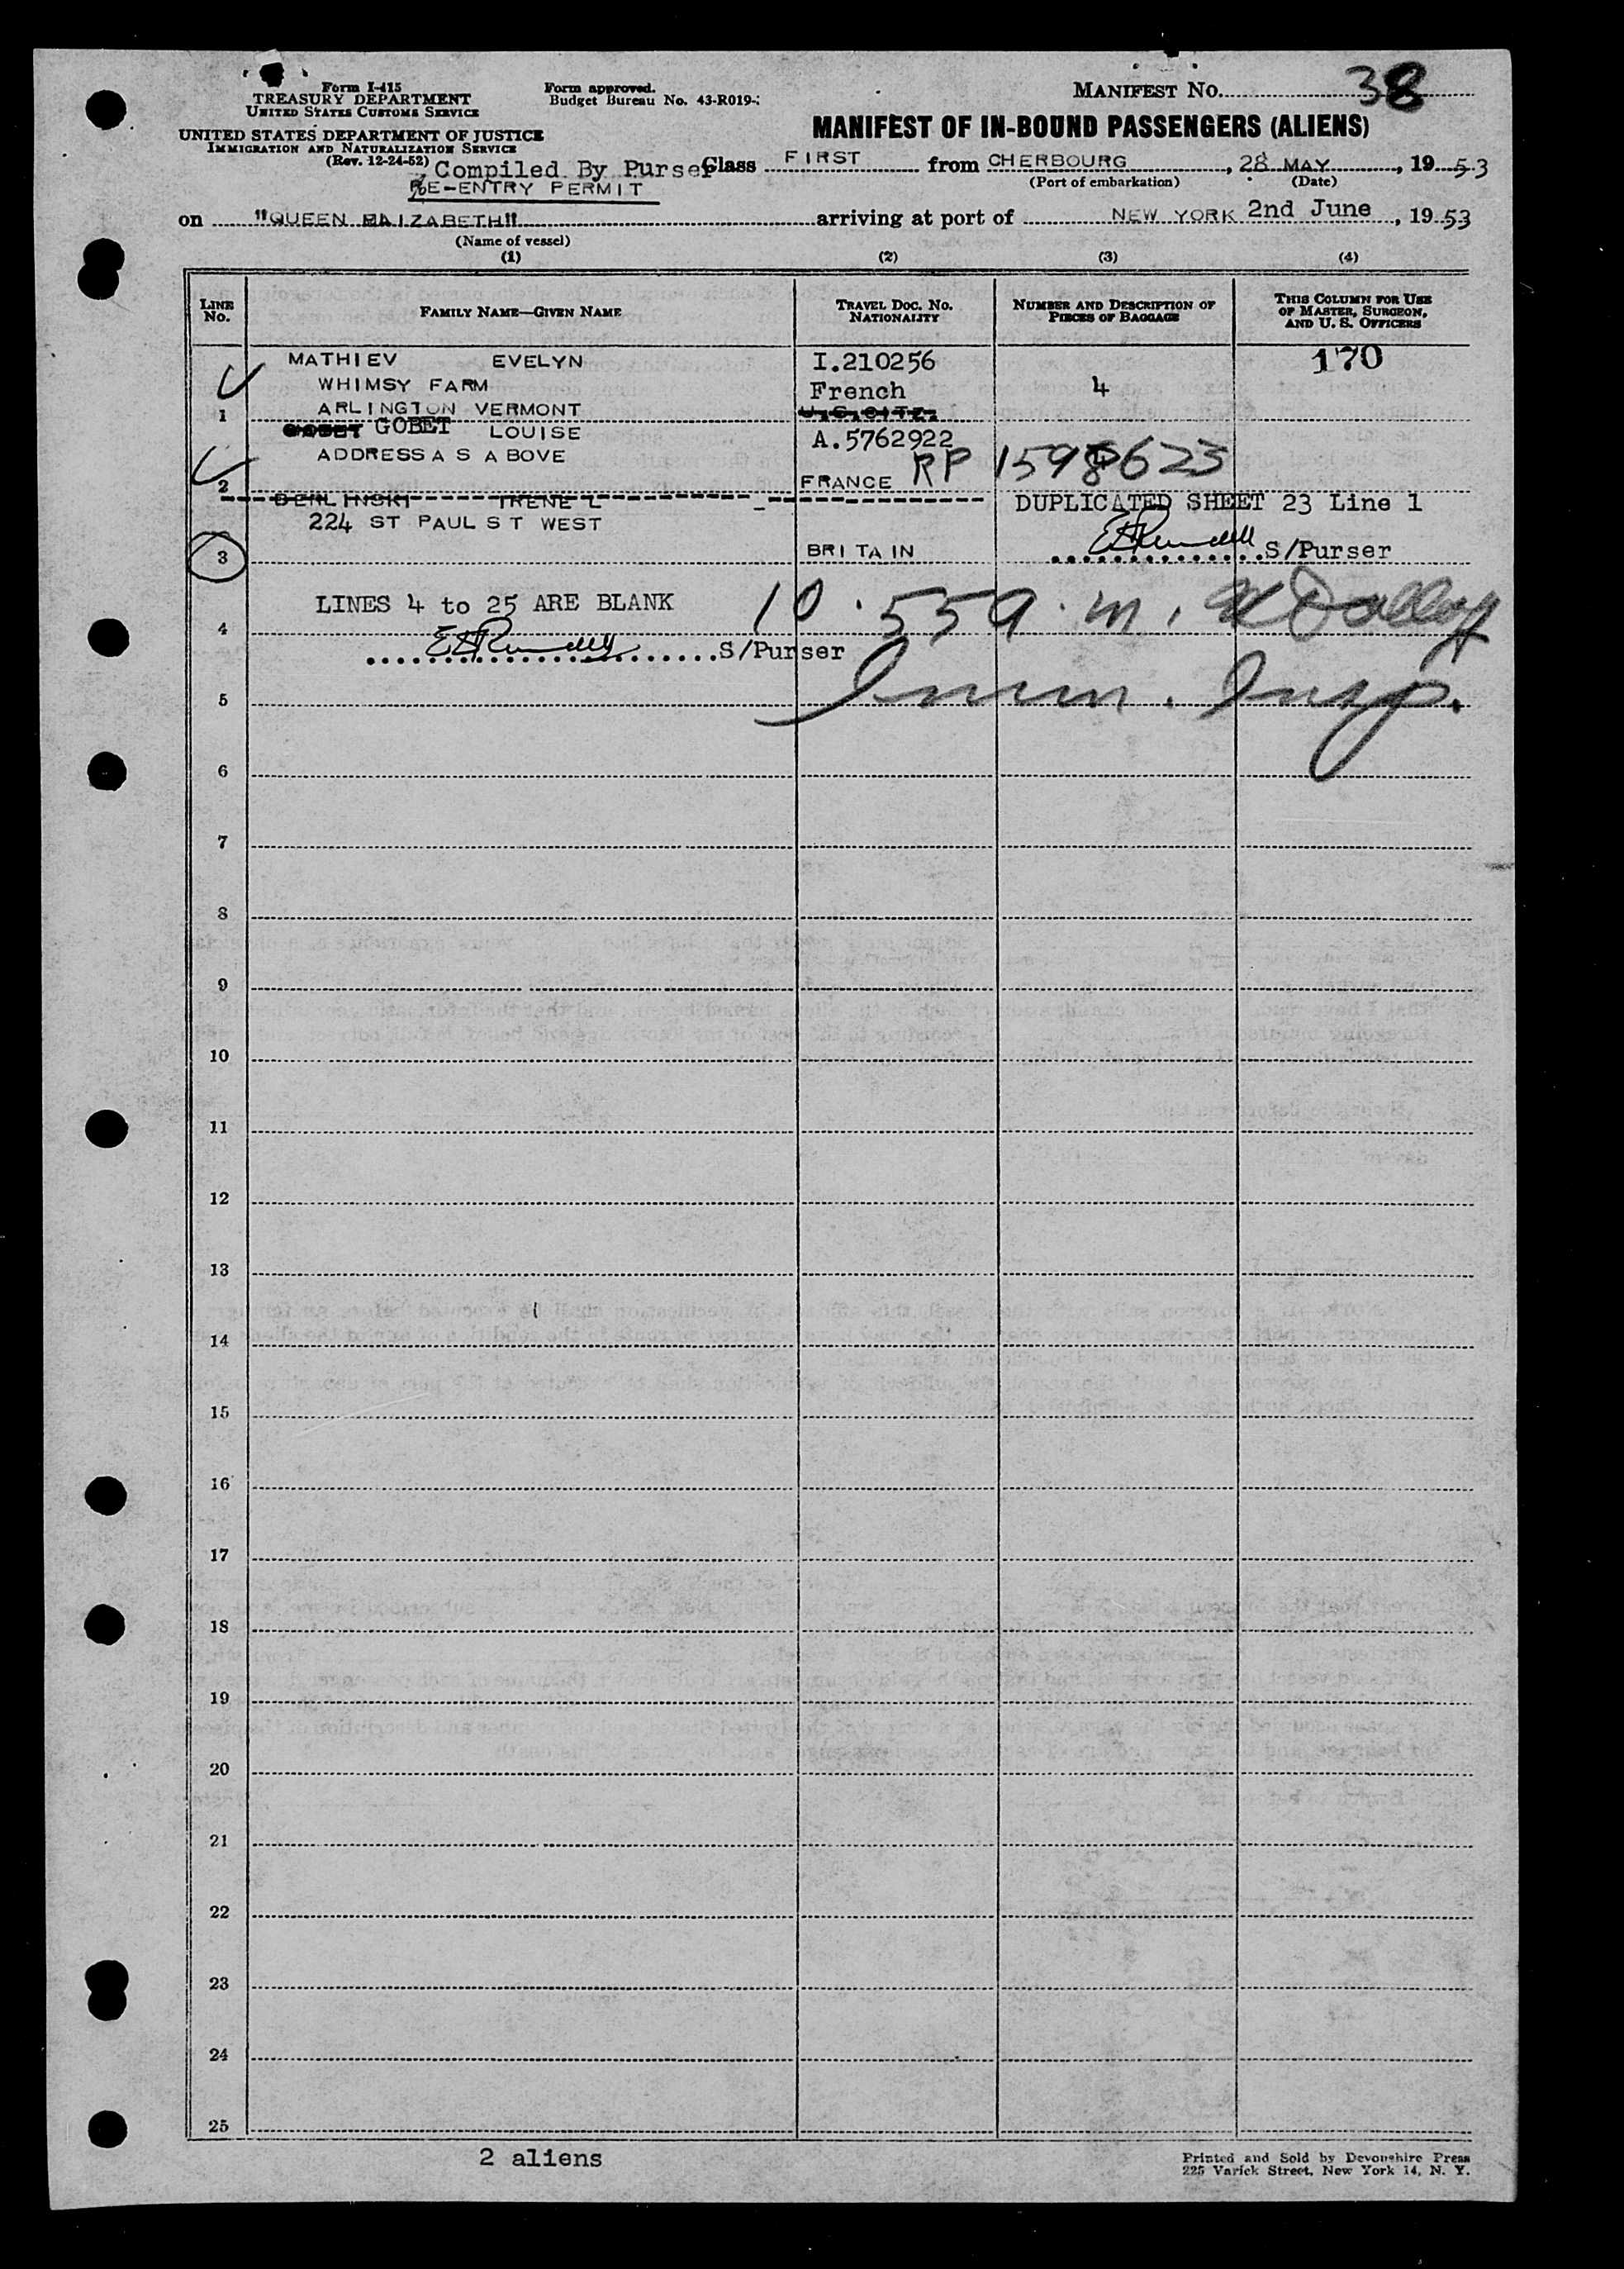 Form I-415
TREASURY DEPARTMENT
UNITED STATES CUSTOMS SERVICE
UNITED STATES DEPARTMENT OF JUSTICE
IMMIGRATION AND NATURALIZATION SERVICE
(Rev. 12-24-52)
Form approved.
Budget Bureau No. 43-R019-
MANIFEST No. 38
MANIFEST OF IN-BOUND PASSENGERS (ALIENS)
Compiled By Purser
RE-ENTRY PERMIT
Class FIRST from CHERBOURG, 28 MAY, 1953
(Port of embarkation) (Date)
on "QUEEN ELIZABETH" arriving at port of NEW YORK 2nd June, 1953
(Name of vessel)
(1) (2) (3) (4)
LINE No.
FAMILY NAME—GIVEN NAME
TRAVEL DOC. No. NATIONALITY
NUMBER AND DESCRIPTION OF PIECES OF BAGGAGE
THIS COLUMN FOR USE OF MASTER, SURGEON, AND U. S. OFFICERS
MATHIEV EVELYN I.210256 170
WHIMSY FARM French 4
1 ARLINGTON VERMONT U.S.CITZ.
GOBET LOUISE A.5762922
ADDRESS A S A BOVE
2 FRANCE RP 1598623
BERLINSKI IRENE L DUPLICATED SHEET 23 Line 1
224 ST PAUL S T WEST
3 BRI TA IN S/Purser
LINES 4 to 25 ARE BLANK 10.559.m.
4
S/Purser
Imm. Insp.
5
6
7
8
9
10
11
12
13
14
15
16
17
18
19
20
21
22
23
24
25
2 aliens
Printed and Sold by Devonshire Press
225 Varick Street, New York 14, N. Y.